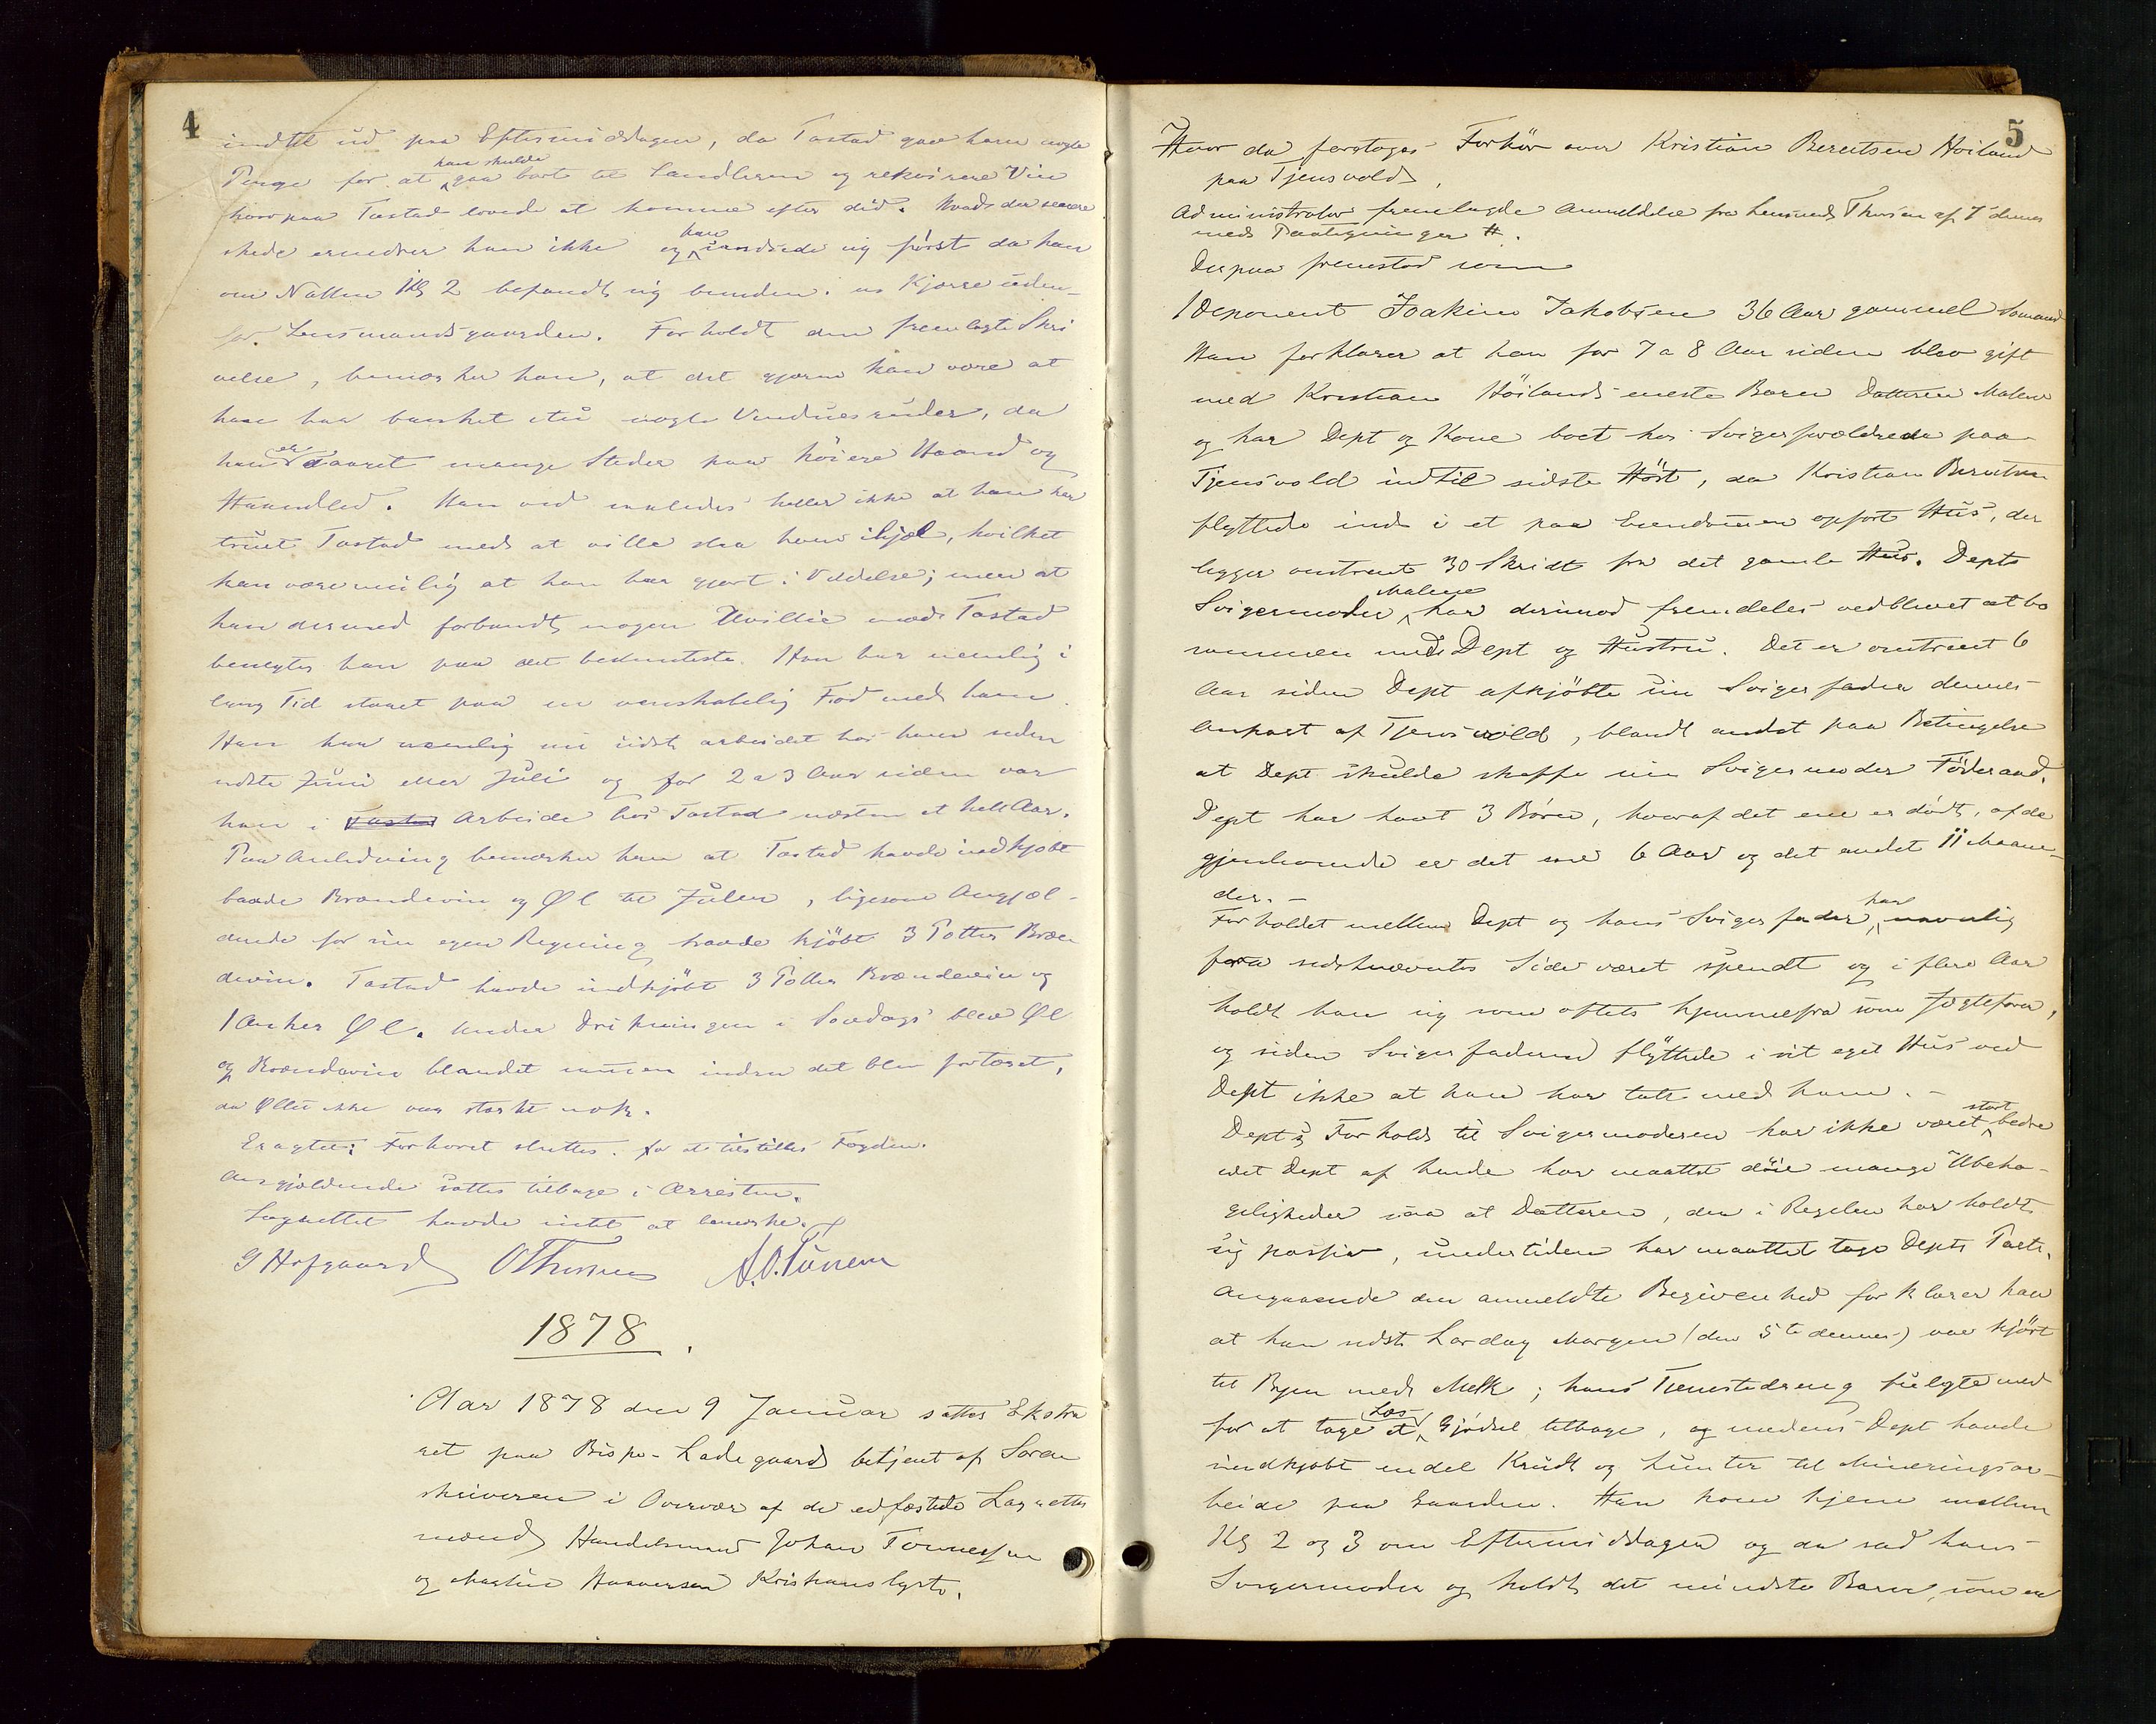 4
indtil ud paa Eftermiddagen, da Tastad gav ham nogle
Penge for at han skulde gaa bort til Landhren og rekvirere Vin
hvorpaa Tastad lovede at komme efter did. Hvad der senere
skede erindrer han ikke og han sandsede sig først da han
om Natten Kl 2 befandt sig bunden i en Kjærre uden-
for Lensmandsgaarden. Forholdt den fremlagte Skri
velse, bemærker han, at det gjerne kan være at
han har banket itu nogle Vinduesruder, da
han er saaret mange Steder paa høiere Haand og
Haandled. Han ved saaledes heller ikke at han har
truet Tastad med at ville slaa ham ihjel, hvilket
kan være mulig at han har gjort i Vildelse; men at
han dermed forbandt nogen Uvillie mod Tastad
benegter han paa det bestemteste. Han har nemlig i
lang Tid staaet paa en venskabelig Fod med ham.
Han har nemlig nu sidst arbeidet hos ham siden
sidste Juni eller Juli og for 2 a 3 Aar siden var
han i Arbeide hos Tastad næsten et helt Aar.
Paa Anledning bemærker han at Tastad havde indkjøbt
baade Brændevin og Øl til Julen, ligesom Angjæl-
dende for sin egen Regning havde kjøbt 3 Potter Bræn
devin. Tastad havde indkjøbt 3 Potter Brændevin og
1 Anker Øl. Under Drikningen i Søndags blev Øl
og Brændevin blandet sammen inden det blev fortæret,
da Øllet ikke var stærkt nok.
Eragtet: Forhøret sluttes for at tilstilles Fogden.
Angjældende sattes tilbage i Arresten.
Lagrettet havde intet at bemærke.
G Hofgaard OThorsen A.O.Tunem
1878.
Aar 1878 den 9 Januar sattes Ekstra
ret paa Bispe-Ladegaard betjent af Soren
skriveren i Overvær af de edfæstede Lagrettes
mænd Handelsmand Johan Tønnessen
og Martin Haaversen Kristianslyst.
5
Hvor da foretoges Forhör over Kristian Berentsen Höiland
paa Tjensvold.
Administrator fremlagde Anmeldelse fra Lensmand Thorsen af 7 dennes
med Paategninger #.
Derpaa fremstod som
1 Deponent Joakim Jakobsen 36 Aar gammel Sömand
Han forklarer at han for 7 a 8 Aar siden blev gift
med Kristian Höilands eneste Barn Datteren Malene
og har Dept og Kone boet hos Svigerforældrene paa
Tjensvold indtil sidste Höst, da Kristian Berentsen
flyttede ind i et paa Eiendommen opført Hus, der
ligger omtrent 30 Skridt fra det gamle Hus. Depts
Svigermoder Malene har derimod fremdeles vedblevet at bo
sammen med Dept og Hustru. Det er omtrent 6
Aar siden Dept afkjöbte sin Svigerfader dennes
Anpart af Tjensvold, blandt andet paa Betingelse
at Dept skulde skaffe sin Svigermoder Föderaad.
Dept har havt 3 Börn, hvoraf det ene er dödt, af de
gjenlevende er det ene 6 Aar og det andet 11 Maane-
der. –
Forholdet mellem Dept og hans Svigerfader, har navnlig
fra sidstnævntes Side været spendt og i flere Aar
holdt han sig som oftest hjemmefra som Jægtefører,
og siden Svigerfaderen flyttede i sit eget Hus ved
Dept ikke at han har talt med ham. –
Depts Forhold til Svigermoderen har ikke været stort bedre
idet Dept af hende har maattet döie mange Ubeha-
geligheder saa at Datteren, der i Regelen har holdt
sig passiv, undertiden har maattet tage Depts Parti.
Angaaende den anmeldte Begivenhed forklarer han
at han sidst Lørdag Morgen (den 5te dennes) var kjört
til Byen med Melk; hans Tjenestedreng fulgte med
for at tage et Læs Gjödsel tilbage, og medens Dept havde
indkjøbt endel Krudt og Lunter til Mineringsar-
beide paa Gaarden. Han kom hjem mellem
Kl 2 og 3 om Eftermiddagen og da sad hans
Svigermoder og holdt det mindste Barn, som er